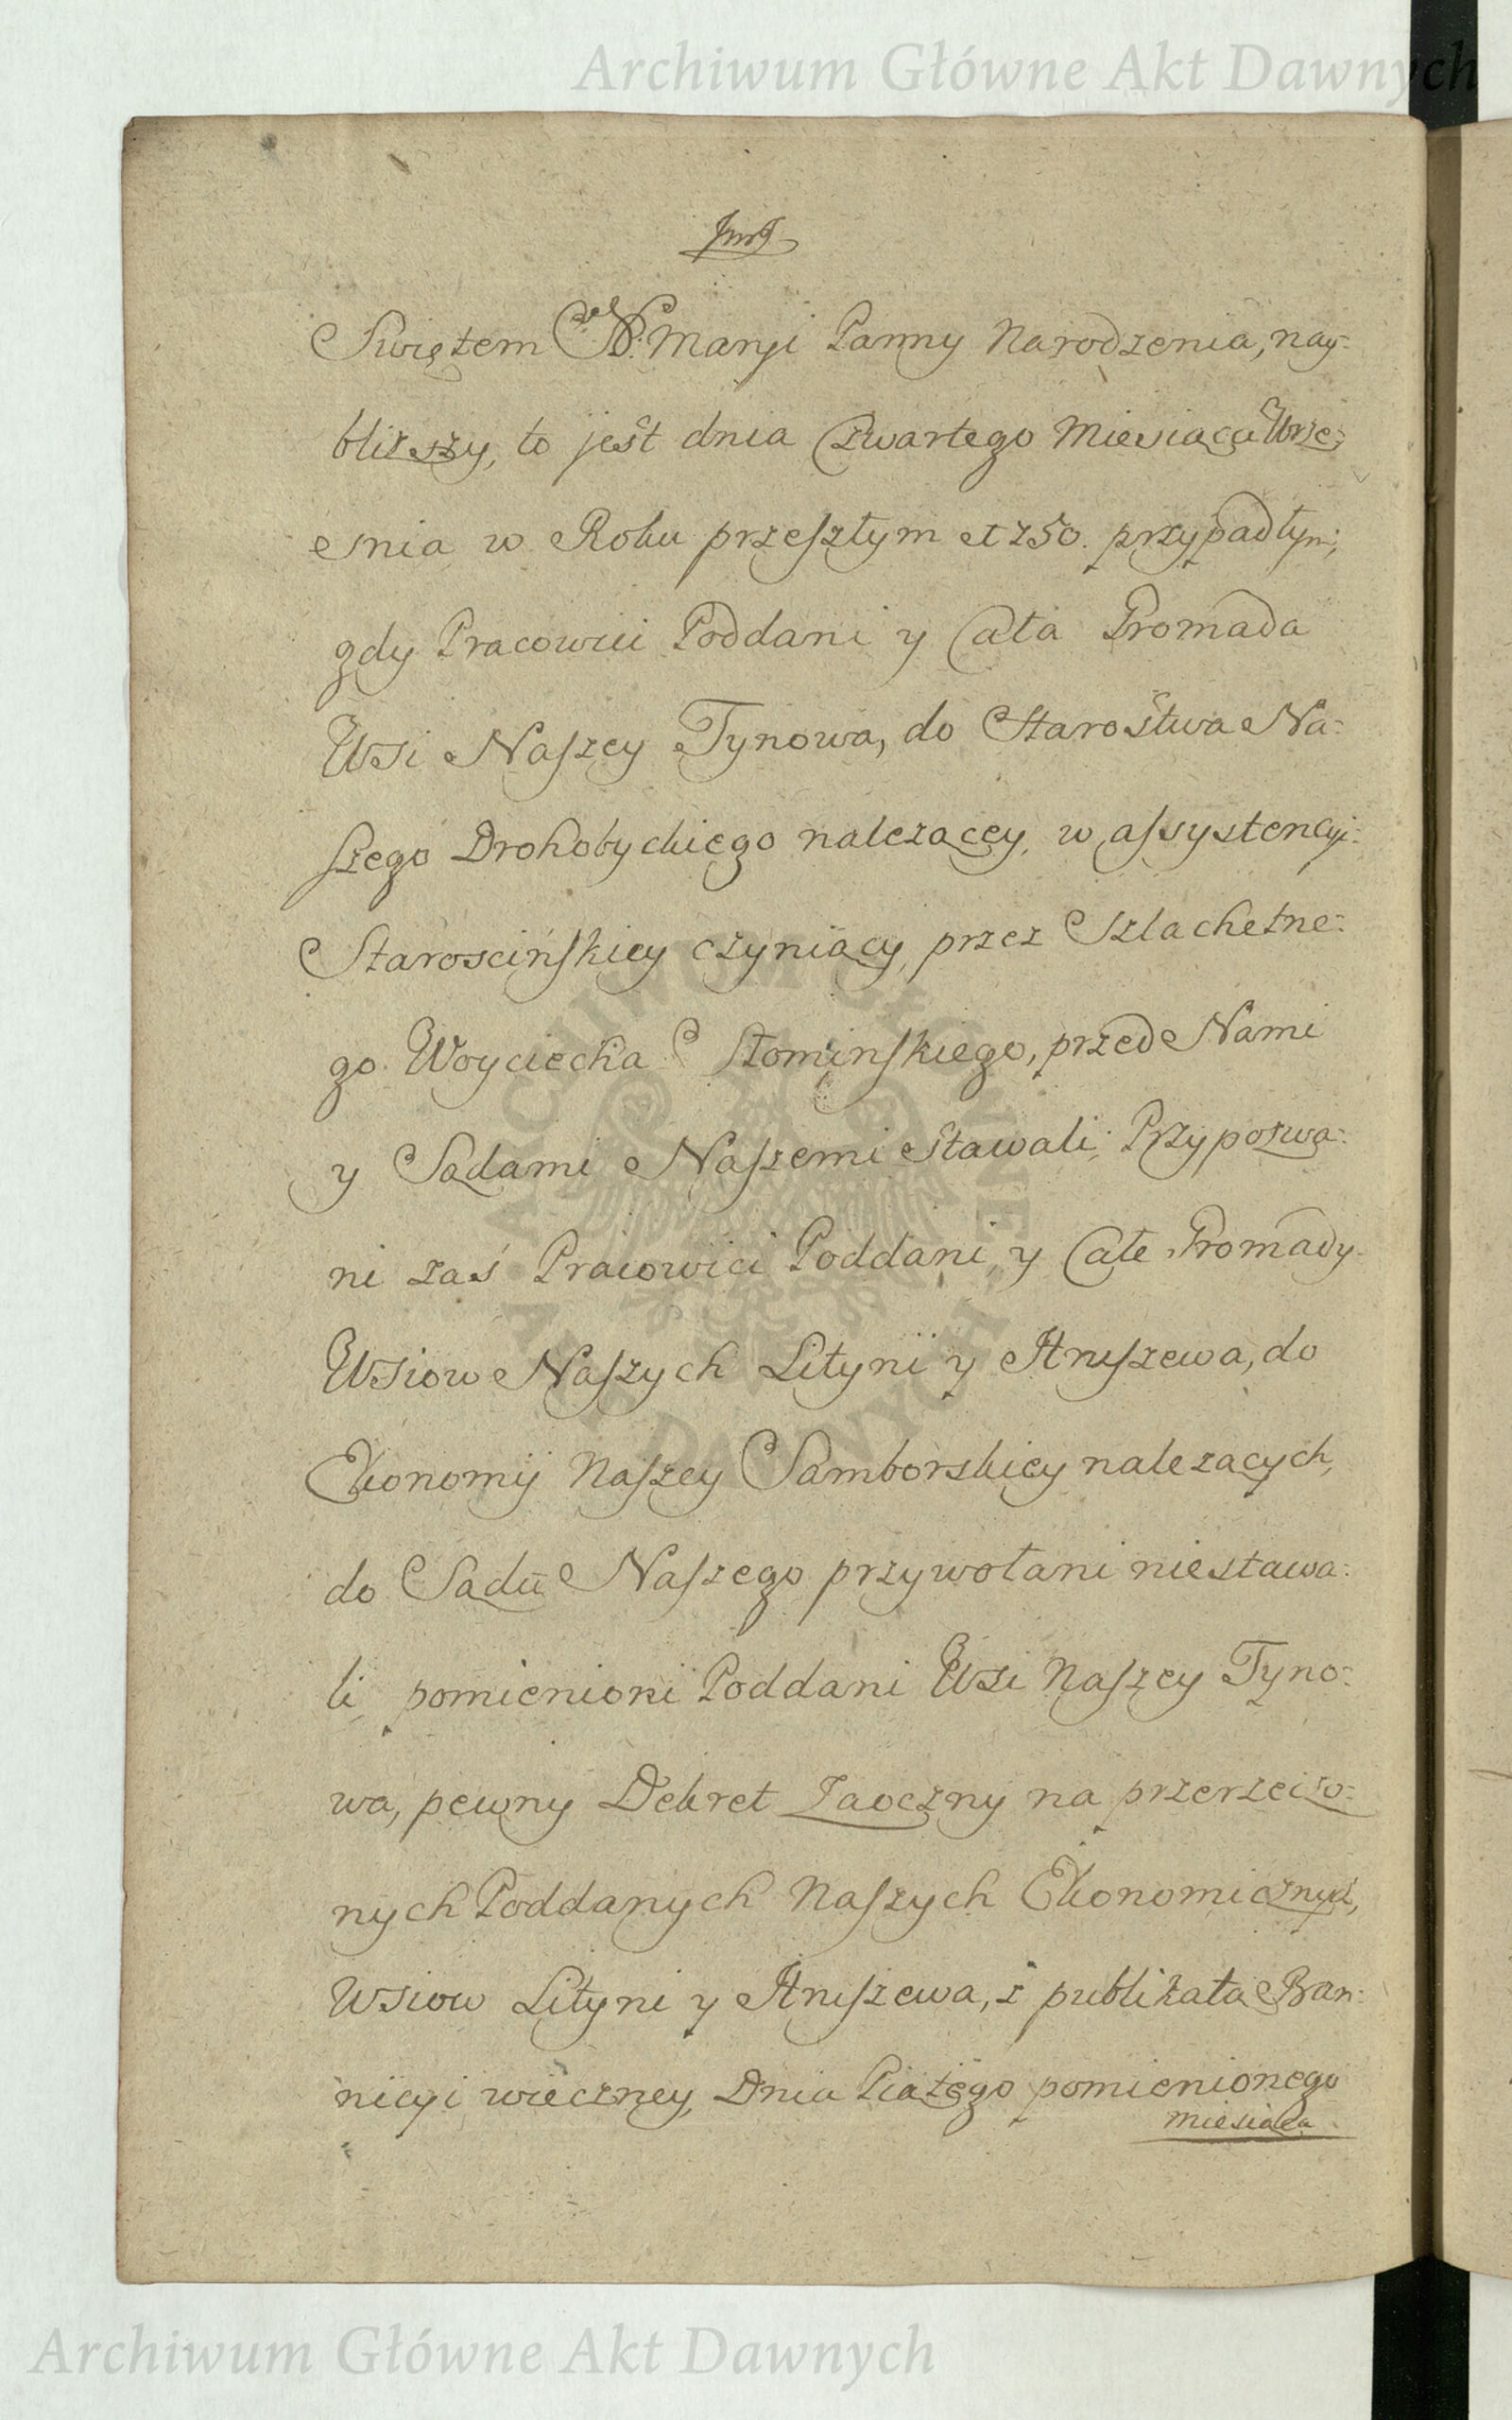 Archiwum Główne Akt Dawnych
Swiętem N. Maryi Panny Narodzenia, nay-
bliższy, to jest dnia Czwartego Miesiąca Wrze-
snia w Roku przeszłym 1750. przypadłym,
gdy Pracowici Poddani y Cała Gromada
Wsi Naszey Tynowa, do Starostwa Na-
szego Drohobyckiego nalezącey, w assystencyi
Starościńskiey czyniący, przez Szlachetne-
go Woyciecha Słominskiego, przed Nami
y Sądami Naszemi Stawali; Przypozwa-
ni zaś Pracowici Poddani, y Całe Gromady
Wsiow Naszych Lityni y Hruszewa, do
Ekonomij Naszey Samborskiey nalezących,
do Sądu Naszego przywołani niestawa-
li, pomienioni Poddani Wsi Naszey Tyno-
wa, pewny Dekret Zaoczny na przerzeczo-
nych Poddanych Naszych Ekonomicznych,
Wsiow Lityni y Hruszewa, z publikatą Ban-
nicyi wieczney, Dnia Piątego pomienionego
Miesiąca
Archiwum Główne Akt Dawnych